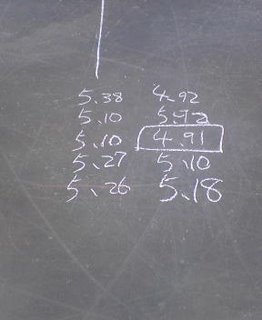 5.38 4.92
5.10 5.92
5.10 4.91
5.27 5.10
5.26 5.18